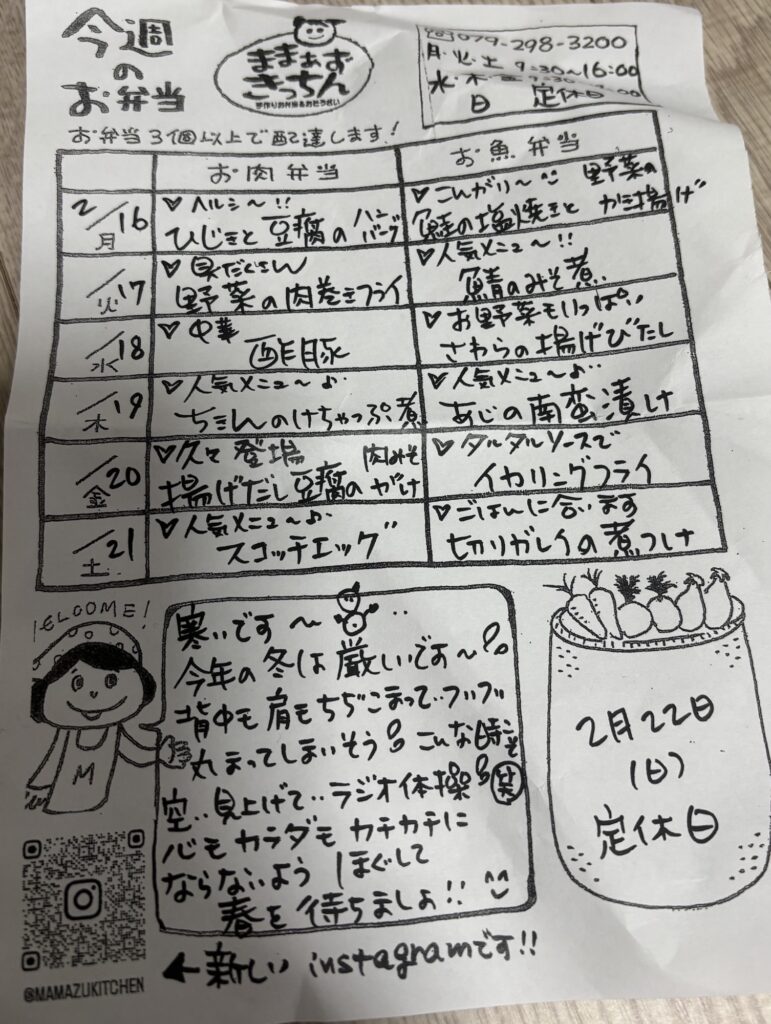 今週
の
お弁当
ままぁず
きっちん
手作りお弁当&おそうざい
079-298-3200
月・火・土 9:30~16:00
水・木・金
日 定休日
お弁当3個以上で配達します!
お肉弁当
お魚弁当
2/16
月
♡ヘルシ~!!
ひじきと豆腐のハンバーグ
♡こんがり~
鮭の塩焼きと野菜のかき揚げ
/17
火
♡具だくさん
野菜の肉巻きフライ
♡人気メニュ~!!
鯖のみそ煮
/18
水
♡中華
酢豚
♡お野菜もいっぱい
さわらの揚げびたし
/19
木
♡人気メニュ~♪
ちきんのけちゃっぷ煮
♡人気メニュ~♪
あじの南蛮漬け
/20
金
♡久々登場
揚げだし豆腐の肉みそがけ
♡タルタルソースで
イカリングフライ
/21
土
♡人気メニュ~♪
スコッチエッグ
♡ごはんに合います
切りガレイの煮つけ
WELCOME!
M
寒いです~
今年の冬は厳しいです~
背中も肩もちぢこまって‥
丸まってしまいそう こんな時こそ
空‥見上げて‥ラジオ体操 笑
心もカラダもカチカチに
ならないよう ほぐして
春を待ちましょ!!
2月22日
(日)
定休日
@MAMAZUKITCHEN
←新しい instagramです!!